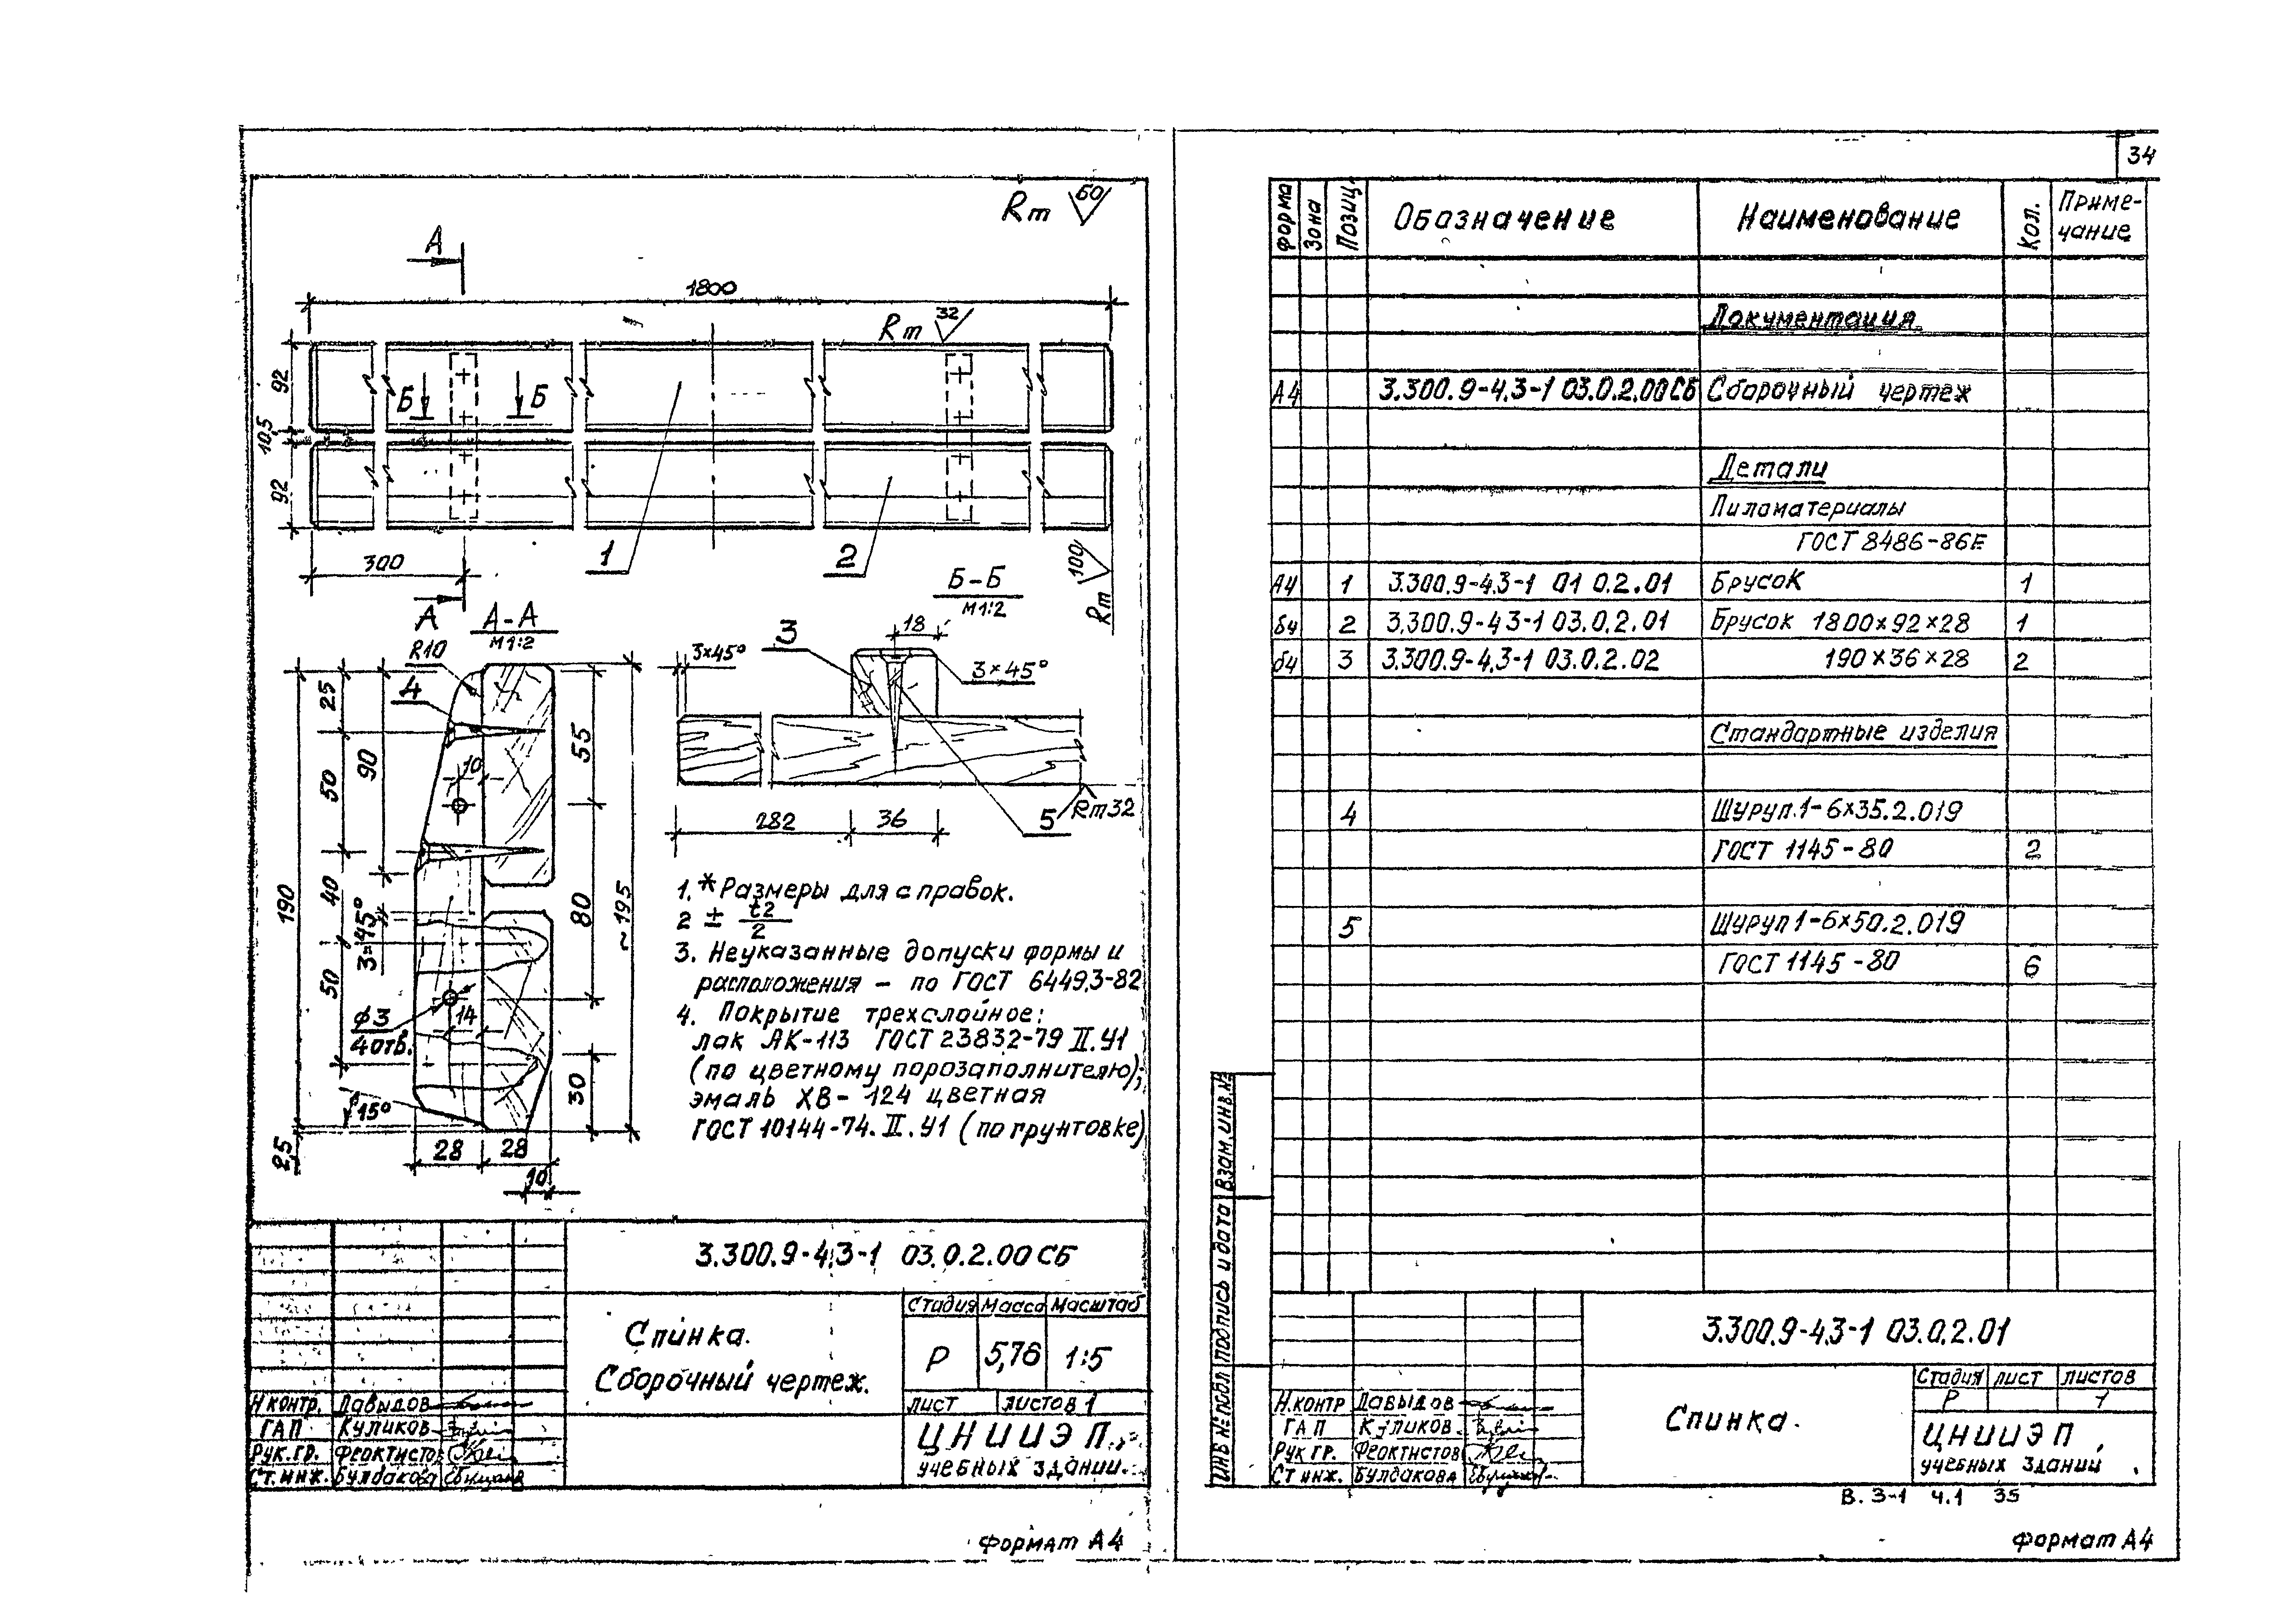 34
Rm 60
А
1800
Rm 32
92
10,5
92
Б
Б
300
1
2
Rm 100
А
А-А
М1:2
Б-Б
М1:2
R10
4
25
50
90
40
50
190
3×45°
ф3
4 отв.
10
14
15°
2,5
28
28
10
55
80
30
~195
3×45°
3
18
3×45°
5
Rm32
282
36
1. * Размеры для справок.
2 ± t2/2
3. Неуказанные допуски формы и
расположения – по ГОСТ 6449.3-82
4. Покрытие трехслойное:
лак АК-113 ГОСТ 23832-79 II.У1
(по цветному порозаполнителю);
эмаль ХВ-124 цветная
ГОСТ 10144-74. II. У1 (по грунтовке)
3.300.9-4.3-1 03.0.2.00 СБ
Спинка.
Сборочный чертеж.
Стадия Масса Масштаб
Р 5,76 1:5
лист листов 1
ЦНИИЭП
учебных зданий.
Н контр. Давыдов
ГАП Куликов
Рук. гр. Феоктистов
Ст. инж. Булдакова
Формат А4
форма Зона Позиц. Обозначение Наименование Кол. Приме-
чание
Документация
А4 3.300.9-4.3-1 03.0.2.00СБ Сборочный чертеж
Детали
Пиломатериалы
ГОСТ 8486-86Е
А4 1 3.300.9-4.3-1 01 0.2.01 Брусок 1
б4 2 3.300.9-4 3-1 03.0.2.01 Брусок 1800×92×28 1
б4 3 3.300.9-4.3-1 03.0.2.02 190×36×28 2
Стандартные изделия
4 Шуруп.1-6×35.2.019
ГОСТ 1145-80 2
5 Шуруп 1-6×50.2.019
ГОСТ 1145-80 6
ИНВ № подл Подпись и дата Взам. инв. №
3.300.9-4.3-1 03.0.2.01
Спинка.
Стадия лист листов
Р 1
ЦНИИЭП
учебных зданий
Н.контр Давыдов
ГАП Куликов
Рук гр. Феоктистов
Ст инж. Булдакова
В. 3-1 ч.1 35
Формат А4